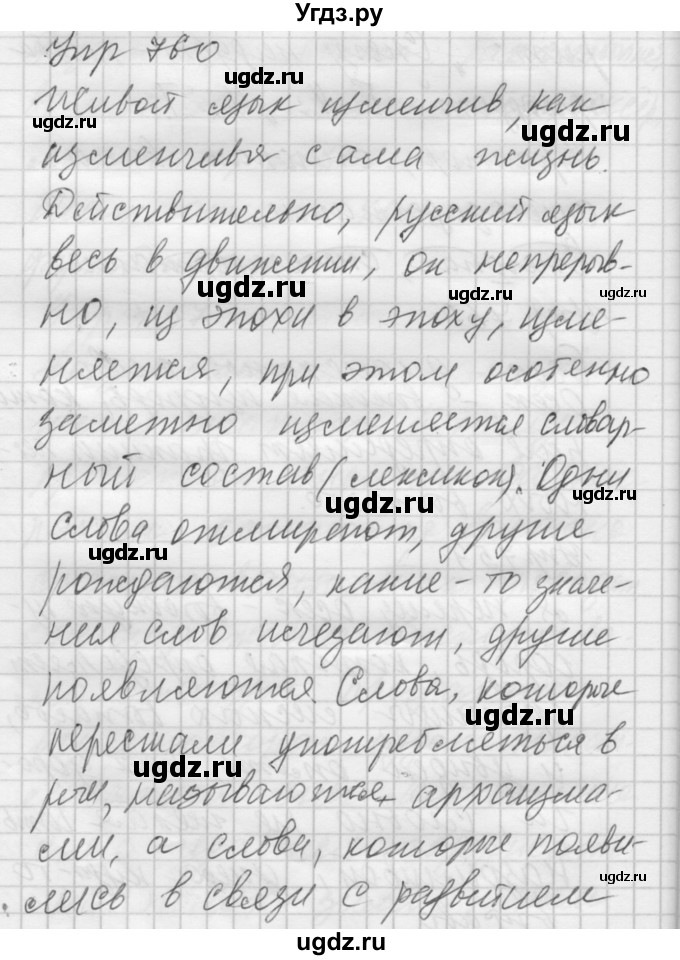 Угдз.ру
Упр 760
Живой язык изменчив, как
изменчивая сама жизнь.
Действительно, русский язык
весь в движении, он непрерыв-
но, из эпохи в эпоху, изме-
няется, при этом особенно
заметно изменяется словар-
ный состав (лексикон). Одни
слова отмирают, другие
рождаются, какие-то значе-
ния слов исчезают, другие
появляются. Слова, которые
перестали употребляться в
речи, называются архаизма-
ми, а слова, которые появи-
лись в связи с развитием
ugdz.ru
ugdz.ru
ugdz.ru
ugdz.ru
ugdz.ru
ugdz.ru
ugdz.ru
ugdz.ru
ugdz.ru
ugdz.ru
ugdz.ru
ugdz.ru
ugdz.ru